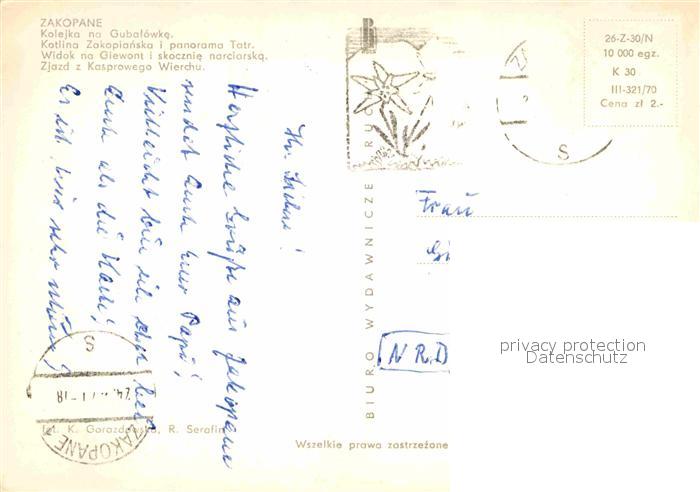 ZAKOPANE
Kolejka na Gubałówkę.
Kotlina Zakopiańska i panorama Tatr.
Widok na Giewont i skocznię narciarską.
Zjazd z Kasprowego Wierchu.
26-Z-30/N
10 000 egz.
K 30
III-321/70
Cena zł 2.-
Ihr Lieben!
Herzliche Grüße aus Zakopane
sendet Euch Euer Papi!
Vielleicht bin ich eher bei
Euch als die Karte!
Es ist hier sehr schön!
BIURO WYDAWNICZE RUCH
Frau
NRD
privacy protection
Datenschutz
ZAKOPANE
S
S
fot. K. Gorazdowska, R. Serafin
Wszelkie prawa zastrzeżone